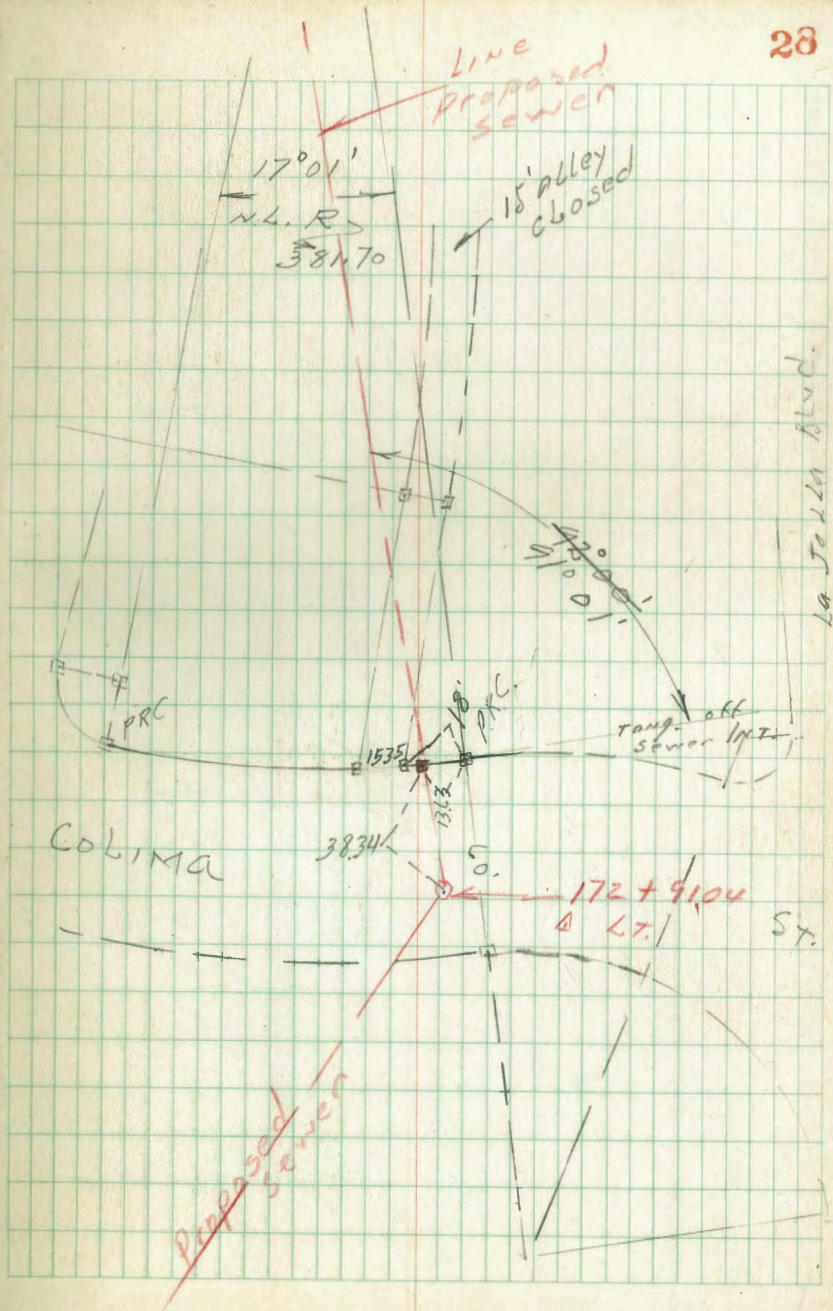 28
LINE
Proposed
Sewer
17°01'
N.L. R
381.70
15' Alley
Closed
La Jolla Blvd.
PRC
15.35
7.18
P.R.C.
13.63
Tang. off
Sewer INT.
COLIMA
38.34
172 + 91.04
Δ LT.
ST.
Proposed
Sewer